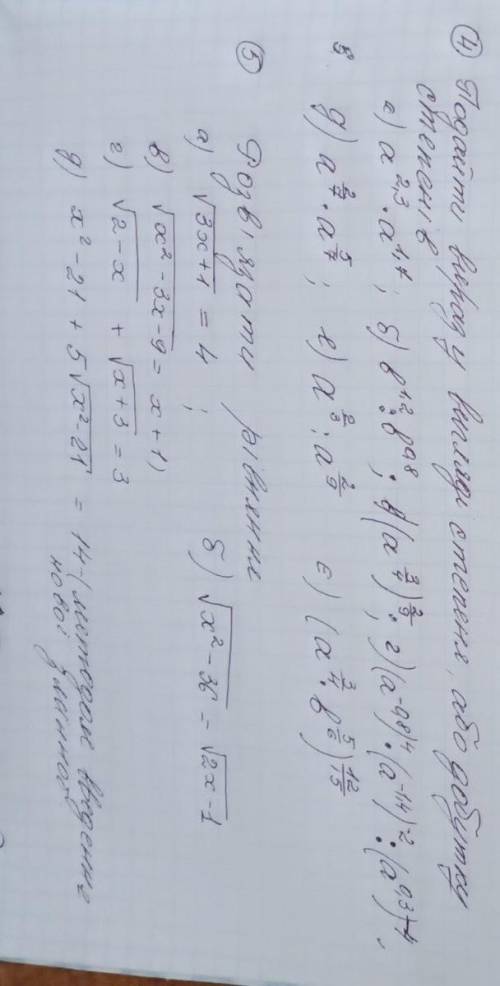 ④ Подайти вираз у вигляді степеня, або добутку
степенів
а) a^{2,3} · a^{1,7}; б) b^{4,2} : b^{0,8}; в) (a^{3/4})^{2/9}; г) (a^{-0,8})^4 · (a^{-1,4})^{-2} : (a^{0,3})^{-4};
д) a^{2/7} · a^{3/7}; е) a^{2/3} : a^{2/9} є) (a^{3/4} · b^{5/6})^{12/15}
⑤ Розв'язати рівняння
а) √(3x+1) = 4; б) √(x²-36) = √(2x-1)
в) √(x²-3x-9) = x+1;
г) √(2-x) + √(x+3) = 3
д) x²-21 + 5√(x²-21) = 14 - (методом введення
нової змінної)